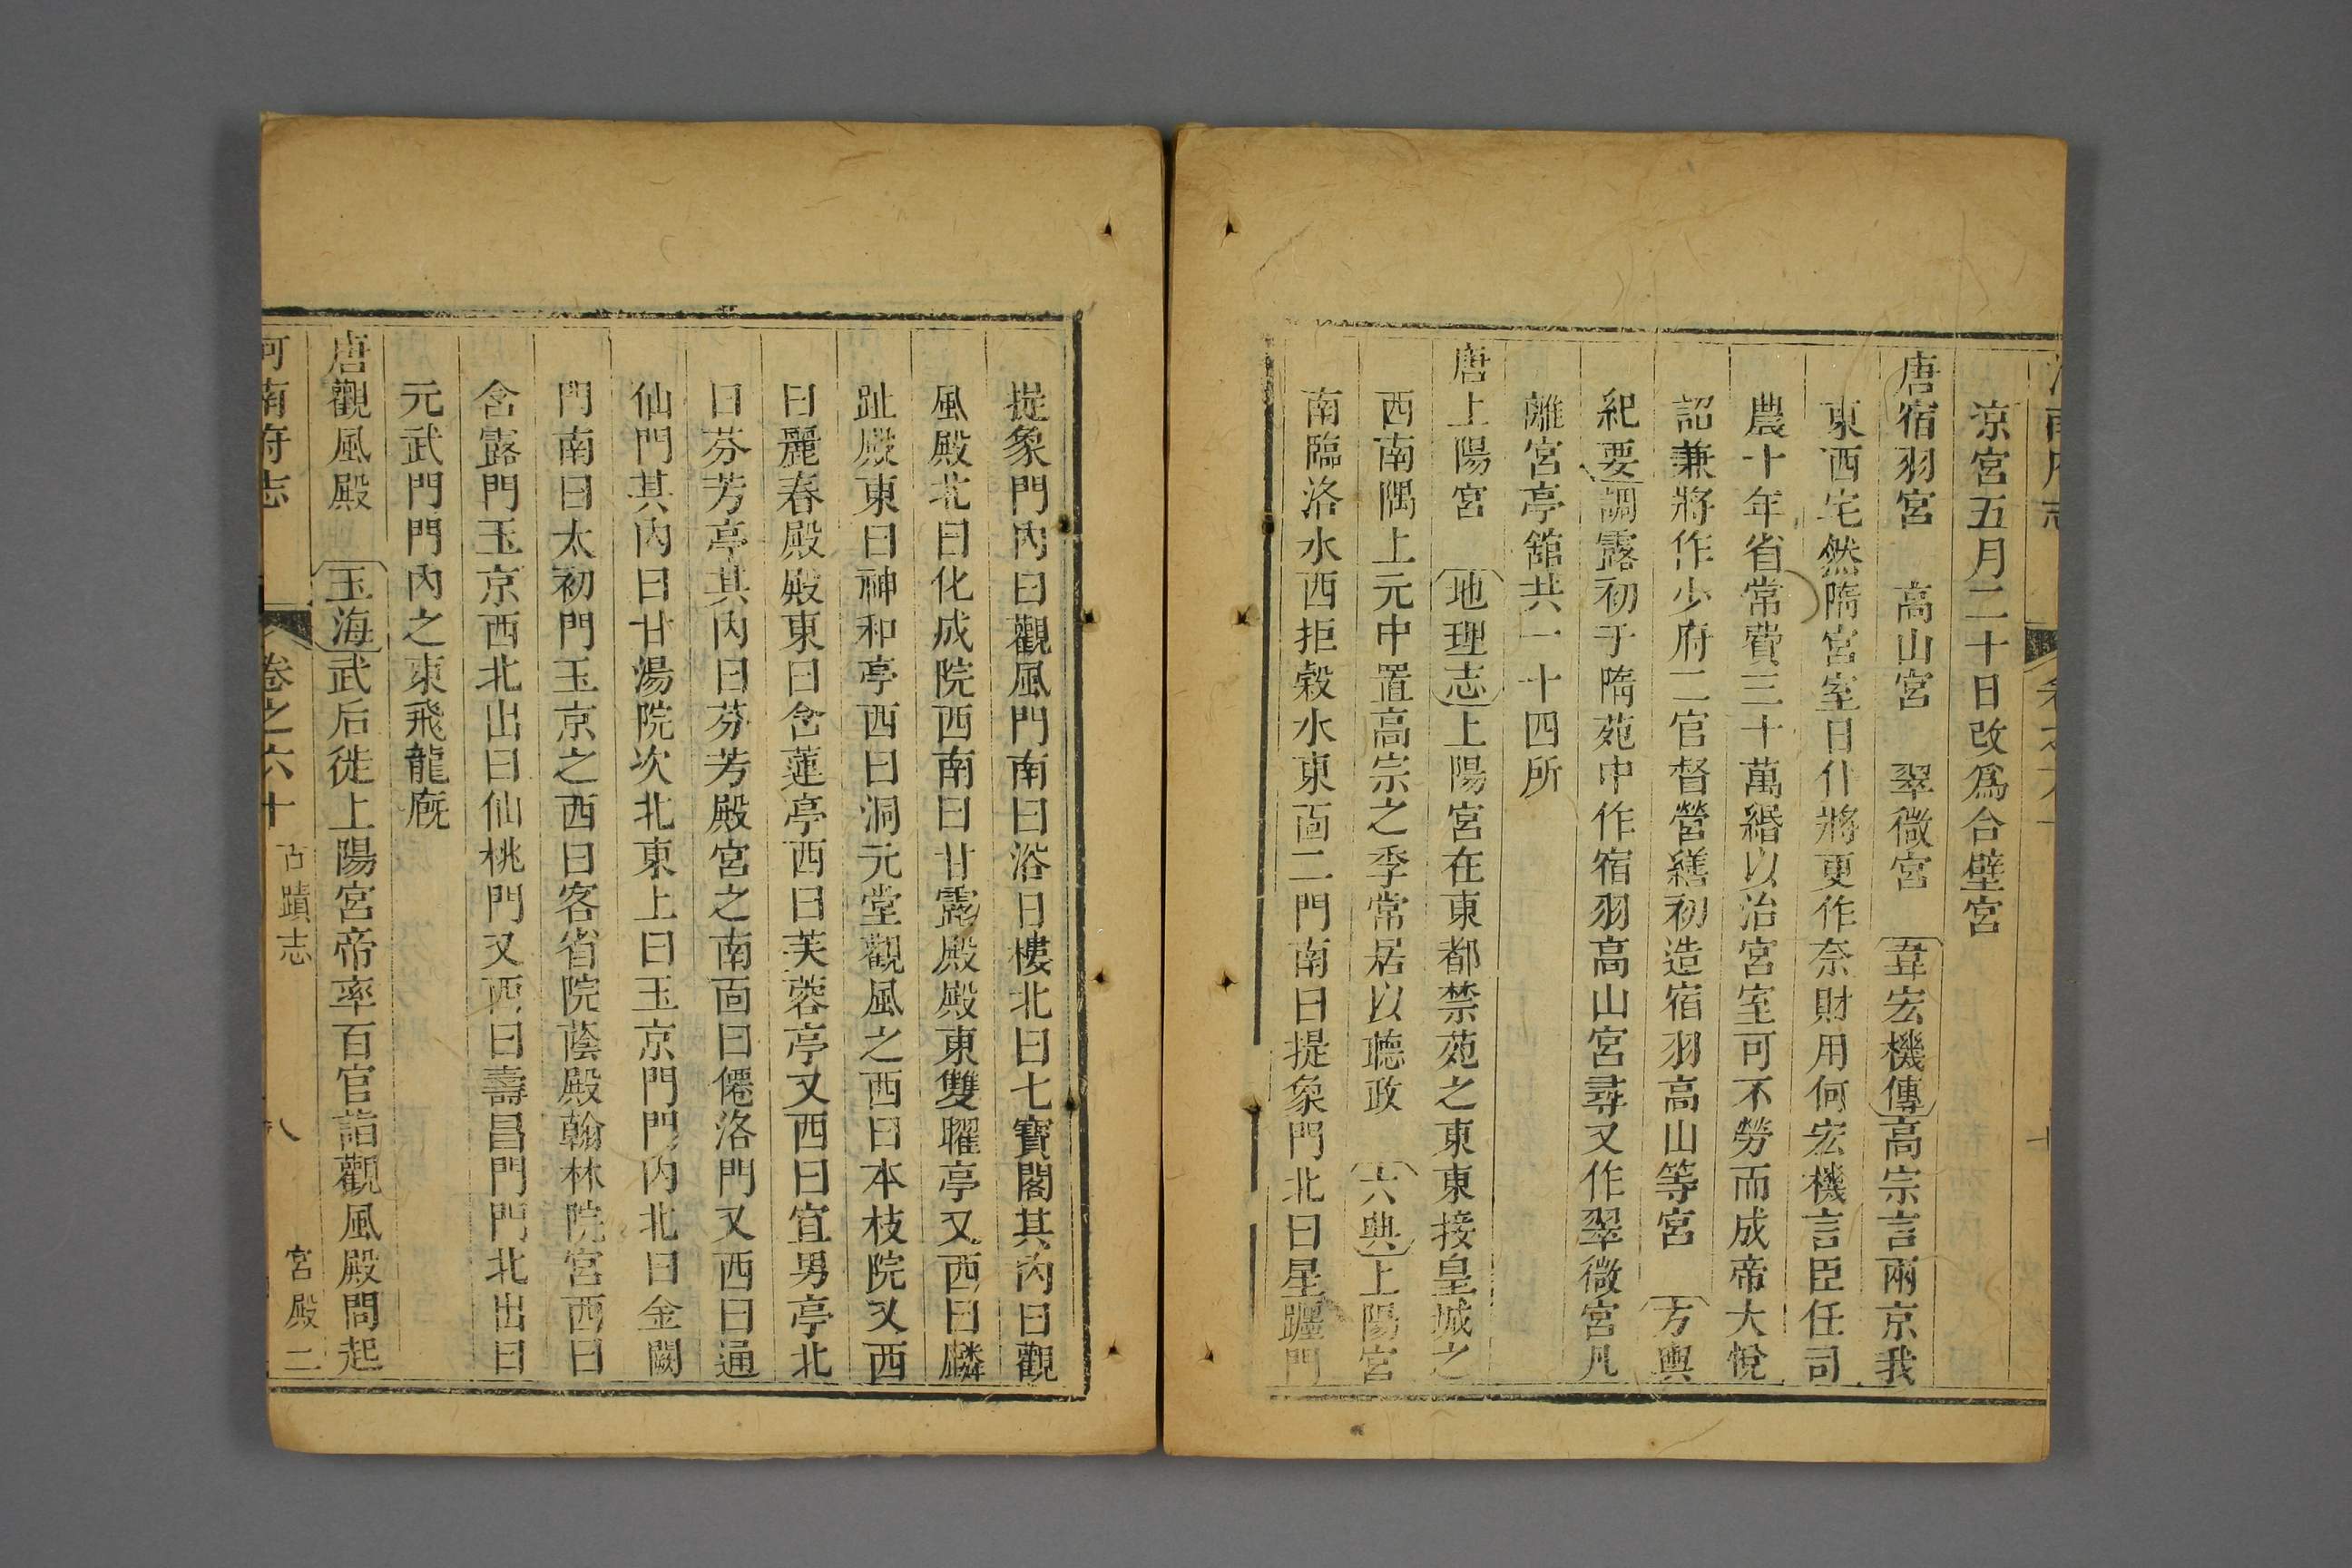 涼宮五月二十日改爲合璧宮
唐宿羽宮　高山宮　翠微宮　韋宏機傳高宗言兩京我
東西宅然隋宮室日仆將更作奈財用何宏機言臣任司
農十年省常費三十萬緡以治宮室可不勞而成帝大悅
詔兼將作少府二官督營繕初造宿羽高山等宮　方輿
紀要調露初于隋苑中作宿羽高山宮尋又作翠微宮凡
離宮亭館共一十四所
唐上陽宮　地理志上陽宮在東都禁苑之東東接皇城之
西南隅上元中置高宗之季常居以聽政　六典上陽宮
南臨洛水西拒榖水東面二門南曰提象門北曰星躔門
提象門內曰觀風門南曰浴日樓北曰七寶閣其內曰觀
風殿北曰化成院西南曰甘露殿殿東雙曜亭又西曰麟
趾殿東曰神和亭西曰洞元堂觀風之西曰本枝院又西
曰麗春殿殿東曰含蓮亭西曰芙蓉亭又西曰宜男亭北
曰芬芳亭其內曰芬芳殿宮之南面曰僊洛門又西曰通
仙門其內曰甘湯院次北東上曰玉京門門內北曰金闕
門南曰太初門玉京之西曰客省院蔭殿翰林院宮西曰
含露門玉京西北出曰仙桃門又西曰壽昌門門北出曰
元武門門內之東飛龍廐
唐觀風殿　玉海武后徙上陽宮帝率百官詣觀風殿問起
河南府志　卷之六十　古蹟志　八　宮殿二